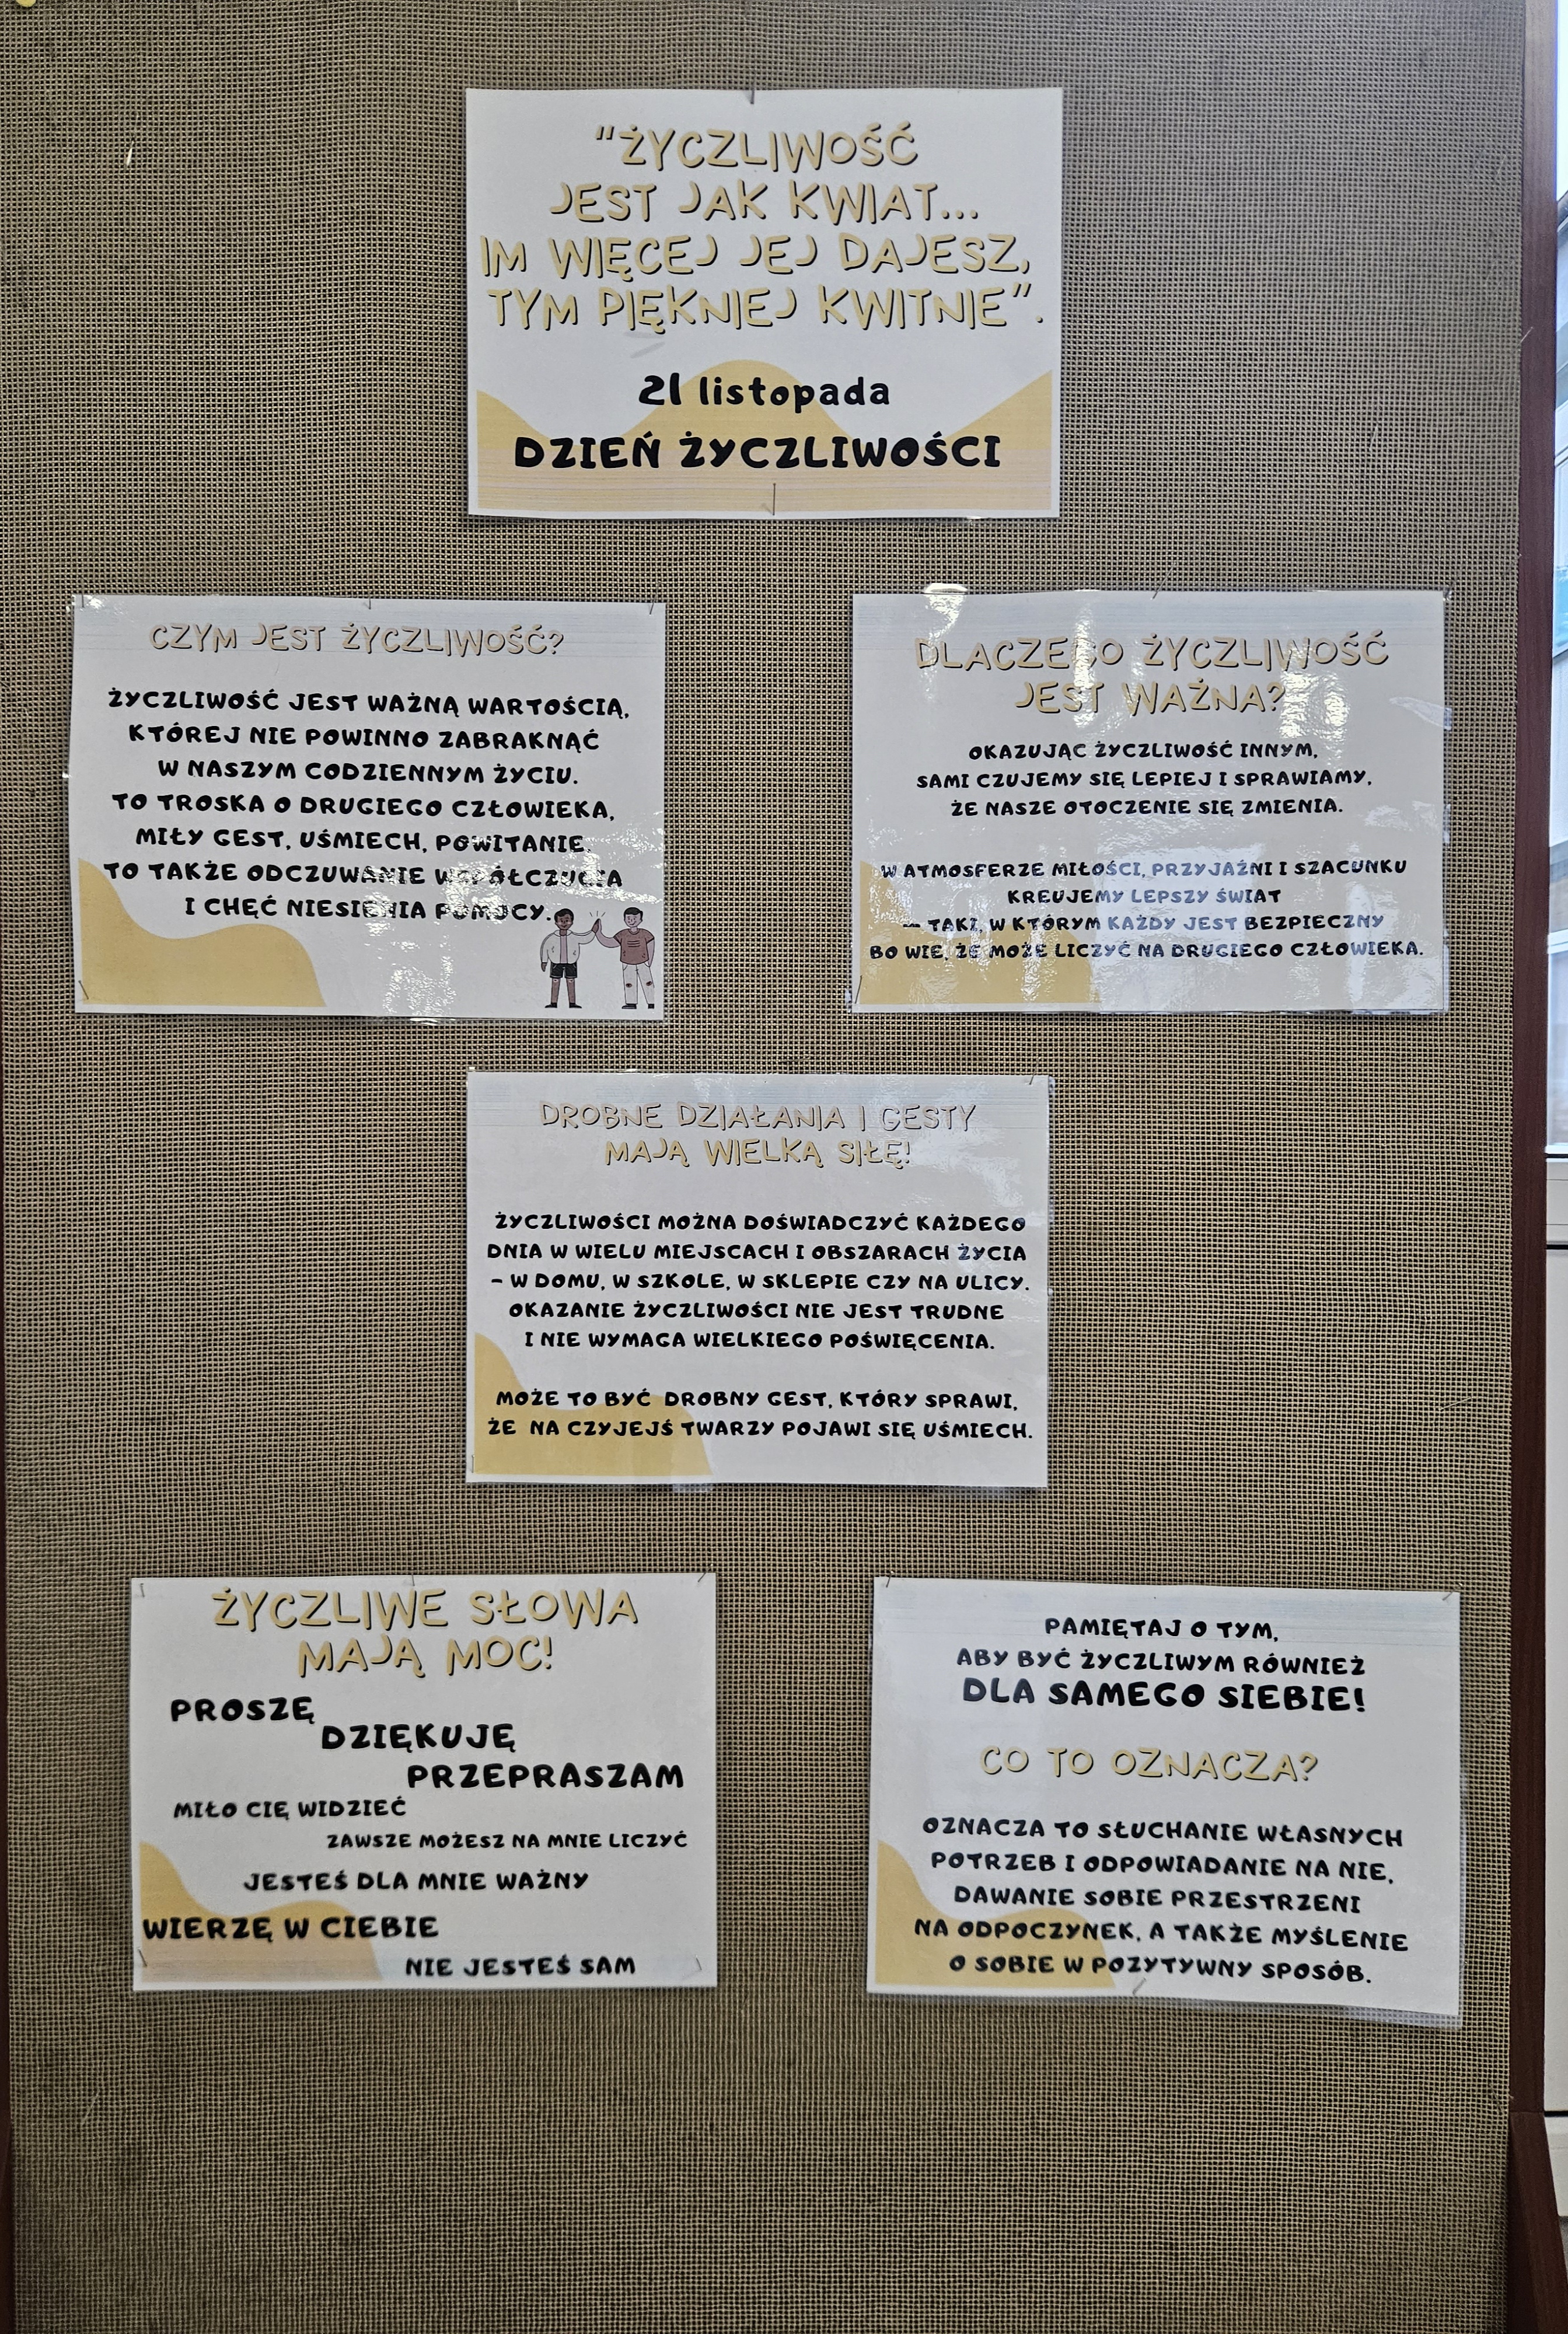 "ŻYCZLIWOŚĆ
JEST JAK KWIAT...
IM WIĘCEJ JEJ DAJESZ,
TYM PIĘKNIEJ KWITNIE".
21 listopada
DZIEŃ ŻYCZLIWOŚCI
CZYM JEST ŻYCZLIWOŚĆ?
ŻYCZLIWOŚĆ JEST WAŻNĄ WARTOŚCIĄ,
KTÓREJ NIE POWINNO ZABRAKNĄĆ
W NASZYM CODZIENNYM ŻYCIU.
TO TROSKA O DRUGIEGO CZŁOWIEKA,
MIŁY GEST, UŚMIECH, POWITANIE.
TO TAKŻE ODCZUWANIE WSPÓŁCZUCIA
I CHĘĆ NIESIENIA POMOCY.
DLACZEGO ŻYCZLIWOŚĆ
JEST WAŻNA?
OKAZUJĄC ŻYCZLIWOŚĆ INNYM,
SAMI CZUJEMY SIĘ LEPIEJ I SPRAWIAMY,
ŻE NASZE OTOCZENIE SIĘ ZMIENIA.
W ATMOSFERZE MIŁOŚCI, PRZYJAŹNI I SZACUNKU
KREUJEMY LEPSZY ŚWIAT
— TAKI, W KTÓRYM KAŻDY JEST BEZPIECZNY
BO WIE, ŻE MOŻE LICZYĆ NA DRUGIEGO CZŁOWIEKA.
DROBNE DZIAŁANIA I GESTY
MAJĄ WIELKĄ SIŁĘ!
ŻYCZLIWOŚCI MOŻNA DOŚWIADCZYĆ KAŻDEGO
DNIA W WIELU MIEJSCACH I OBSZARACH ŻYCIA
– W DOMU, W SZKOLE, W SKLEPIE CZY NA ULICY.
OKAZANIE ŻYCZLIWOŚCI NIE JEST TRUDNE
I NIE WYMAGA WIELKIEGO POŚWIĘCENIA.
MOŻE TO BYĆ DROBNY GEST, KTÓRY SPRAWI,
ŻE NA CZYJEJŚ TWARZY POJAWI SIĘ UŚMIECH.
ŻYCZLIWE SŁOWA
MAJĄ MOC!
PROSZĘ
DZIĘKUJĘ
PRZEPRASZAM
MIŁO CIĘ WIDZIEĆ
ZAWSZE MOŻESZ NA MNIE LICZYĆ
JESTEŚ DLA MNIE WAŻNY
WIERZĘ W CIEBIE
NIE JESTEŚ SAM
PAMIĘTAJ O TYM,
ABY BYĆ ŻYCZLIWYM RÓWNIEŻ
DLA SAMEGO SIEBIE!
CO TO OZNACZA?
OZNACZA TO SŁUCHANIE WŁASNYCH
POTRZEB I ODPOWIADANIE NA NIE,
DAWANIE SOBIE PRZESTRZENI
NA ODPOCZYNEK, A TAKŻE MYŚLENIE
O SOBIE W POZYTYWNY SPOSÓB.